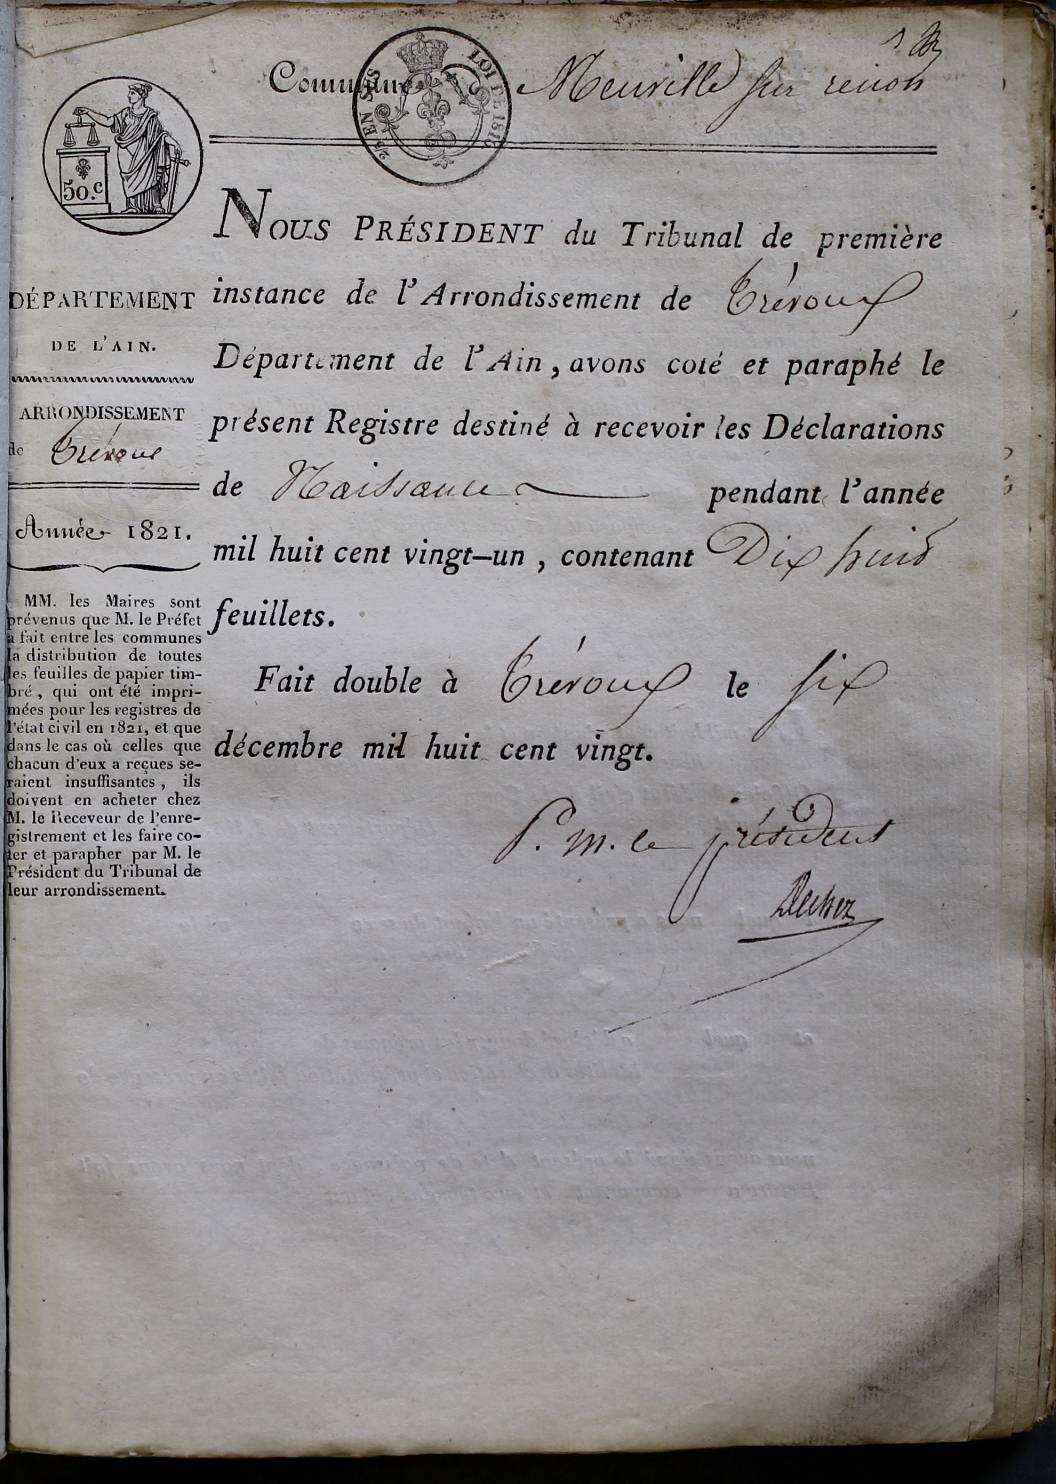 Commune de Neuville sur renon
2/5 EN SUS LOI DE 1816
50.c
DÉPARTEMENT
DE L'AIN.
ARRONDISSEMENT
de Trévoux
Année 1821.
MM. les Maires sont
prévenus que M. le Préfet
a fait entre les communes
la distribution de toutes
les feuilles de papier tim-
bré, qui ont été impri-
mées pour les registres de
l'état civil en 1821, et que
dans le cas où celles que
chacun d'eux a reçues se-
raient insuffisantes, ils
doivent en acheter chez
M. le Receveur de l'enre-
gistrement et les faire co-
ter et parapher par M. le
Président du Tribunal de
leur arrondissement.
NOUS PRÉSIDENT du Tribunal de première
instance de l'Arrondissement de Trévoux
Département de l'Ain, avons coté et paraphé le
présent Registre destiné à recevoir les Déclarations
de Naissance pendant l'année
mil huit cent vingt-un, contenant Dix huit
feuillets.
Fait double à Trévoux le six
décembre mil huit cent vingt.
P. m. le président